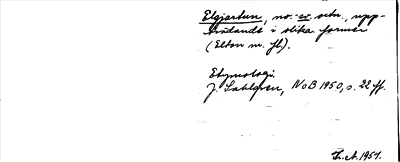 Elgjartun, no. sv. ortn., upp-
trädande i olika former
(Elton m. fl.).
Etymologi.
J. Sahlgren, NoB 1950, s. 22 ff.
Th. A. 1957.